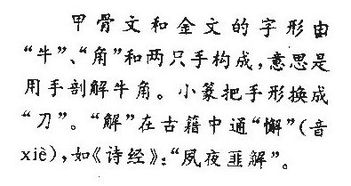 甲骨文和金文的字形由
“牛”、“角”和两只手构成，意思是
用手剖解牛角。小篆把手形换成
“刀”。“解”在古籍中通“懈”(音
xiè)，如《诗经》：“夙夜匪解”。